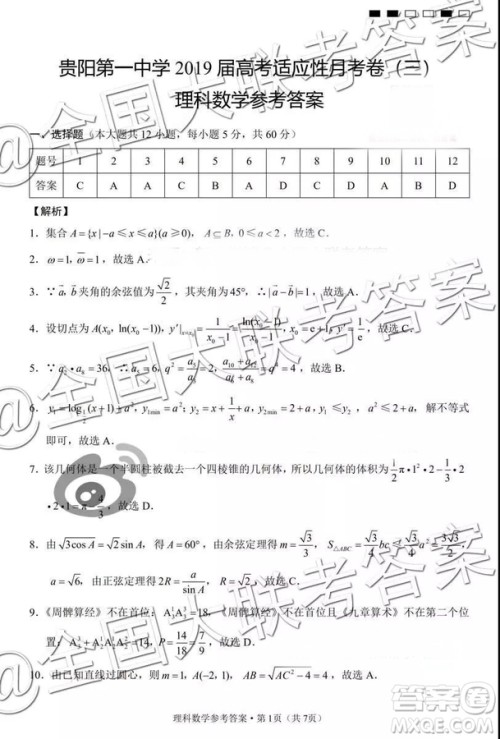 贵阳第一中学 2019 届高考适应性月考卷（三）
理科数学参考答案
一、选择题（本大题共 12 小题，每小题 5 分，共 60 分）
题号 1 2 3 4 5 6 7 8 9 10 11 12
答案 C A A C B A D D D A C D
【解析】
1．集合 A={x|-a≤x≤a}(a≥0)，A⊆B, 0≤a<2，故选 C．
2．ω=1, ω̄=1，故选 A．
3．∵a, b 夹角的余弦值为 √2/2，其夹角为 45°，∴|a-b|=1，故选 A．
4．设切点为 A(x₀, ln(x₀-1))，y'|x=x₀ = 1/(x₀-1) = ln(x₀-1)/(x₀-1)，x₀=e+1, y'=1/e，故选 C．
5．∵a₁·a₈=36，
=q²·q²=4，故选 B．
，y₂min=2+a，y₁≤y₂，a²≤2+a，解不等式
即可，故选 A．
7．该几何体是一个半圆柱被截去一个四棱锥的几何体，所以几何体的体积为 1/2 π·1²·2-1/3·2
·2·1=π-4/3，故选 D．
8．由 √3cosA=√2sinA，得 A=60°，由余弦定理得
a=√6，由正弦定理得 2R=a/sinA，故选 D．
9．《周髀算经》不在首位：A₃¹A₃³=18，《周髀算经》不在首位且《九章算术》不在第二个位
置：A₃³+A₂¹A₂¹A₂²=14，P=14/18=7/9，故选 D．
10．由已知直线过圆心，则 m=1，A(-2, 1)，AB=√(AC²-4)=4，故选 A．
理科数学参考答案·第 1 页（共 7 页）
全国大联考答案